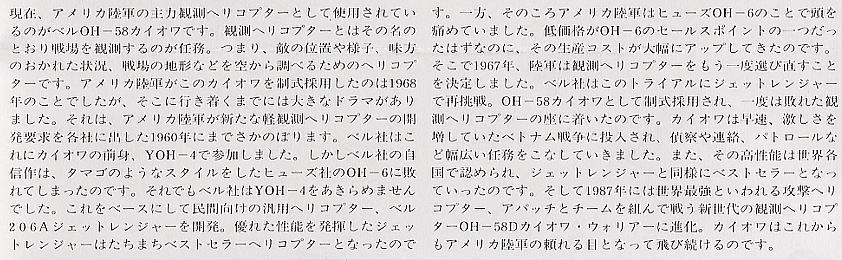 現在、アメリカ陸軍の主力観測ヘリコプターとして使用されてい
るのがベルOH－58カイオワです。観測ヘリコプターとはその名の
とおり戦場を観測するのが任務。つまり、敵の位置や様子、味方
のおかれた状況、戦場の地形などを空から調べるためのヘリコプ
ターです。アメリカ陸軍がこのカイオワを制式採用したのは1968
年のことでしたが、そこに行き着くまでには大きなドラマがあり
ました。それは、アメリカ陸軍が新たな軽観測ヘリコプターの開
発要求を各社に出した1960年にまでさかのぼります。ベル社はこ
れにカイオワの前身、YOH－4で参加しました。しかしベル社の自
信作は、タマゴのようなスタイルをしたヒューズ社のOH－6に敗
れてしまったのです。それでもベル社はYOH－4をあきらめません
でした。これをベースにして民間向けの汎用ヘリコプター、ベル
206Aジェットレンジャーを開発。優れた性能を発揮したジェッ
トレンジャーはたちまちベストセラーヘリコプターとなったので
す。一方、そのころアメリカ陸軍はヒューズOH－6のことで頭を
痛めていました。低価格がOH－6のセールスポイントの一つだっ
たはずなのに、その生産コストが大幅にアップしてきたのです。
そこで1967年、陸軍は観測ヘリコプターをもう一度選び直すこと
を決定しました。ベル社はこのトライアルにジェットレンジャー
で再挑戦。OH－58カイオワとして制式採用され、一度は敗れた観
測ヘリコプターの座に着いたのです。カイオワは早速、激しさを
増していたベトナム戦争に投入され、偵察や連絡、パトロールな
ど幅広い任務をこなしていきました。また、その高性能は世界各
国で認められ、ジェットレンジャーと同様にベストセラーとなっ
ていったのです。そして1987年には世界最強といわれる攻撃ヘリ
コプター、アパッチとチームを組んで戦う新世代の観測ヘリコプ
ターOH－58Dカイオワ・ウォリアーに進化。カイオワはこれから
もアメリカ陸軍の頼れる目となって飛び続けるのです。